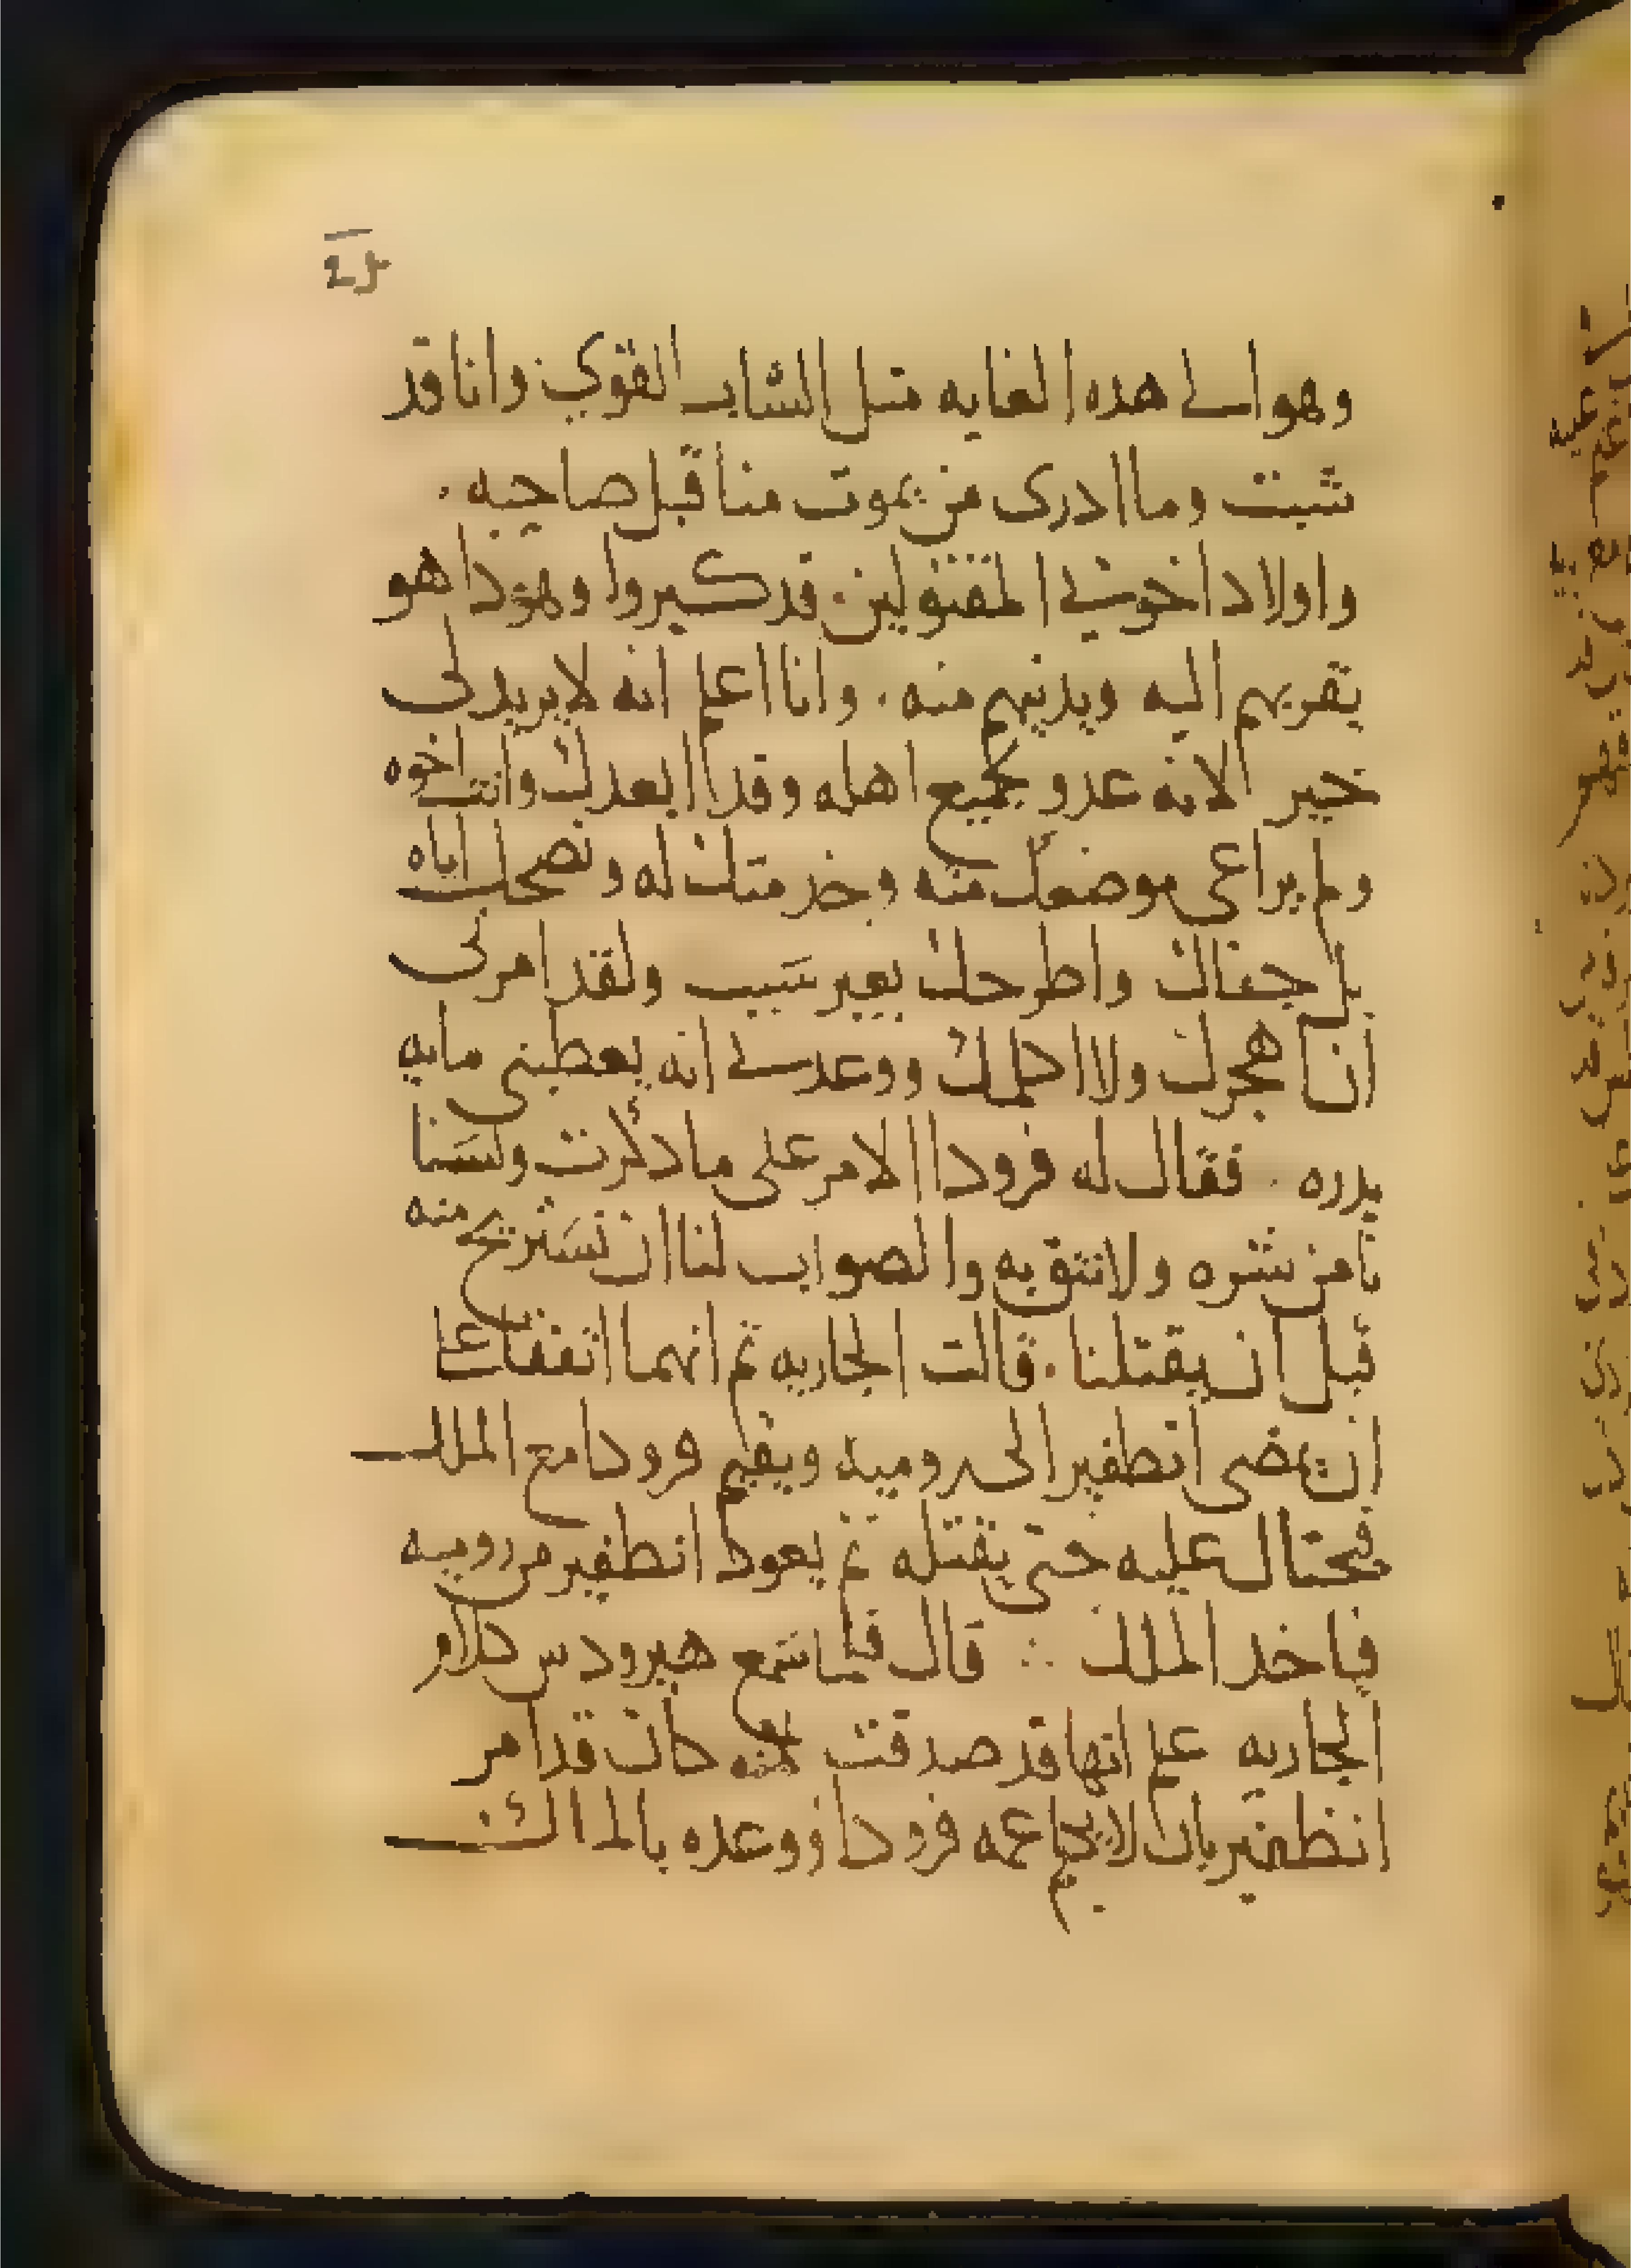 وهو الى هده الغايه متل الشاب القوي وانا قد
شبت وما ادرى من يموت منا قبل صاحبه .
واولاد اخوتي المقتولين . قد كبروا وهودا هو
يقربهم اليه ويدنيهم منه . وانا اعلم انه لا يريد لى
خير لانه عدو لجميع اهله وقد ابعدك وانت اخوه
ولم يراعى موضعك منه وخدمتك له ونصحك اياه
بل جفاك واطرحك بغير سَبب ولقد امرنى
ان اهجرك ولا اكلمك ووعدني انه يعطينى مايه
بدره . فقال له فرودا الامر على ما دكرت ولسَنا
نامن شره ولا نتق به والصواب لنا ان نسَتريح منه
قبل ان يقتلنا . قالت الجاريه تم انهما اتفقا على
ان يمضى انطفير الى روميه ويقيم فرودا مع الملك
فيحتال عليه حتى يقتله تم يعود انطفير من روميه
فياخد الملك ∴ قال فلما سَمع هيرودس كلام
الجاريه علم انها قد صدقت لانه كان قد امر
انطفير بان لا يجامع عمه فرودا ووعده بالمال